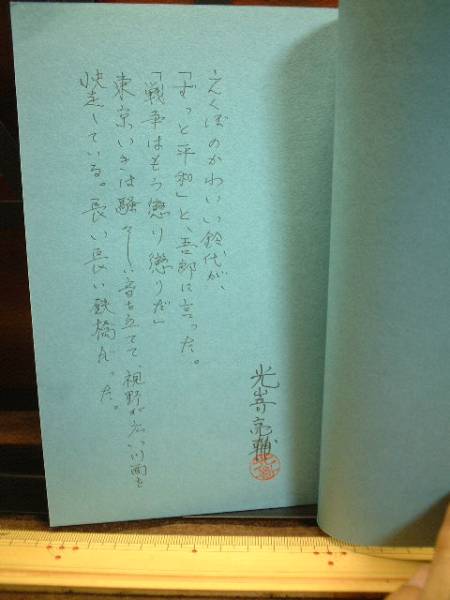 えくぼのかわいい鈴代が、
「ずっと平和」と、吾郎に言った。
「戦争はもう懲り懲りだ」
東京いきは騒々しい音を立てて、視野が広い川面を
快走している。長い長い鉄橋だった。
光嵜亮輔